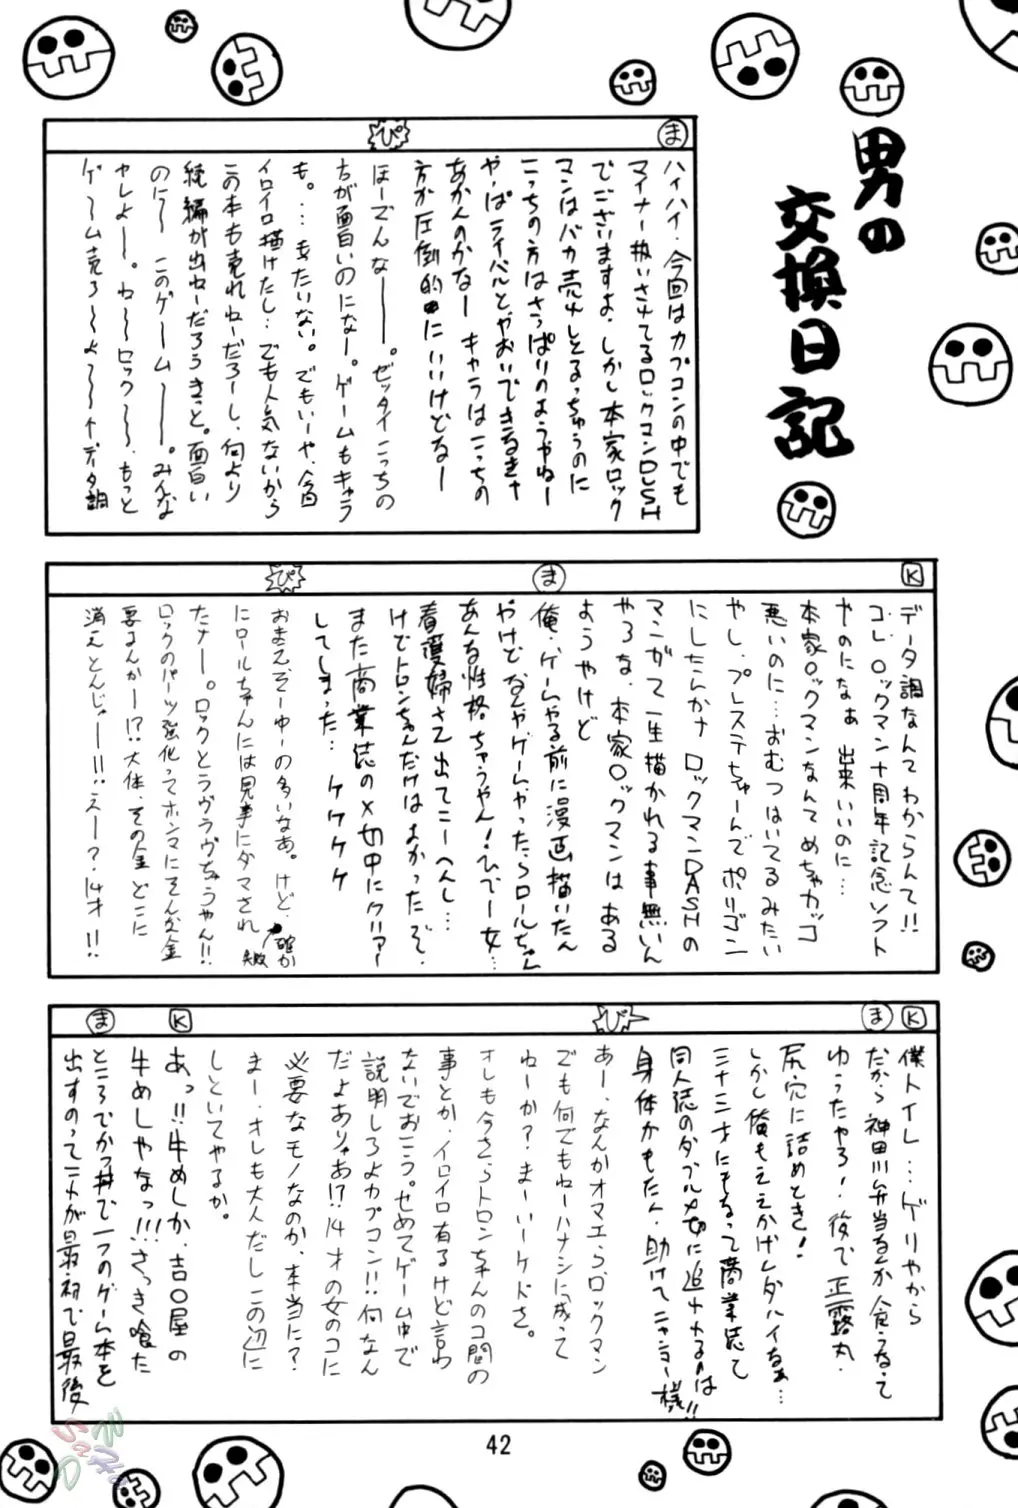 男の
交換日記
ま
ハイハイ、今回はカプコンの中でも
マイナー扱いされてるロックマンDASH
でございますよ。しかし本家ロック
マンはバカ売れしとるっちゅうのに
こっちの方はさっぱりのようやねー
やっぱライバルとやおいできるきゃ
あかんのかなー キャラはこっちの
方が圧倒的にいいけどなー
ぴ
ほーでんなーーー。ゼッタイこっちの
ちが面白いのになー。ゲームもキャラ
も。…もったいない。でもいーや、今回
イロイロ描けたし…でも人気ないから
この本も売れねーだろーし、何より
続編が出ねーだろうきっと。面白い
のに〜 このゲームーー。みんな
やしよー。ね〜ロック〜、もっと
ゲ〜ム売ろ〜よ〜〜↑データ調
K
データ調なんてわからんて!!
コレ、ロックマン十周年記念ソフト
やのになぁ 出来いいのに…
本家ロックマンなんてめちゃカッコ
悪いのに…おむつはいてるみたい
やし、プレステちゃーんでポリゴン
にしたんかナ ロックマンDASHの
マンガて一生描かれる事無いん
やろな、本家ロックマンはある
ようやけど
ま
俺、ゲームやる前に漫画描いたん
やけど なんやゲームやったらロールちゃん
あんな性格ちゃうやん!ひでー女…
看護婦さん出てこーへんし…
けどトロンちゃんだけはよかったぞ。
また商業誌の〆切中にクリアー
してしまった… ケケケケ
ぴ
おまえぞーゆーの多いなあ。けど、確か
にロールちゃんには見事にダマされ
たナー。ロックとラヴラヴちゃうやん!!
ロックのパーツ強化ってホンマにそんな金
要るんかー!?大体、その金 どこに
消えとんじゃーー!!…えー?14才!!
失敗
K
僕トイレ…ゲリやから
ま
だから神田川弁当なんか食うなって
ゆったやろ!後で正露丸、
尻穴に詰めとき!
しかし俺もええかげんダハイなぁ…
三十三才にもなって商業誌て
同人誌のダブル〆切に追われるのは!!
身体がもたん、助けてニャンコー様
ぴ
あー、なんかオマエら、ロックマン
でも何でもねーハナシに成って
ねーか?まーいーケドさ。
オレも今さらトロンちゃんのコ間の
事とか、イロイロ有るけど言わ
ないでおこう。せめてゲーム中で
説明しろよカプコン!!何なん
だよありゃあ!?14才の女のコに
必要なモノなのか、本当に?
まー、オレも大人だしこの辺に
しといてやるか。
K
あっ!!牛めしか、吉○屋の
牛めしやなっ!!!さっき喰った
ま
ところでかつ丼で一つのゲーム本を
出すのってこれが最初で最後
42